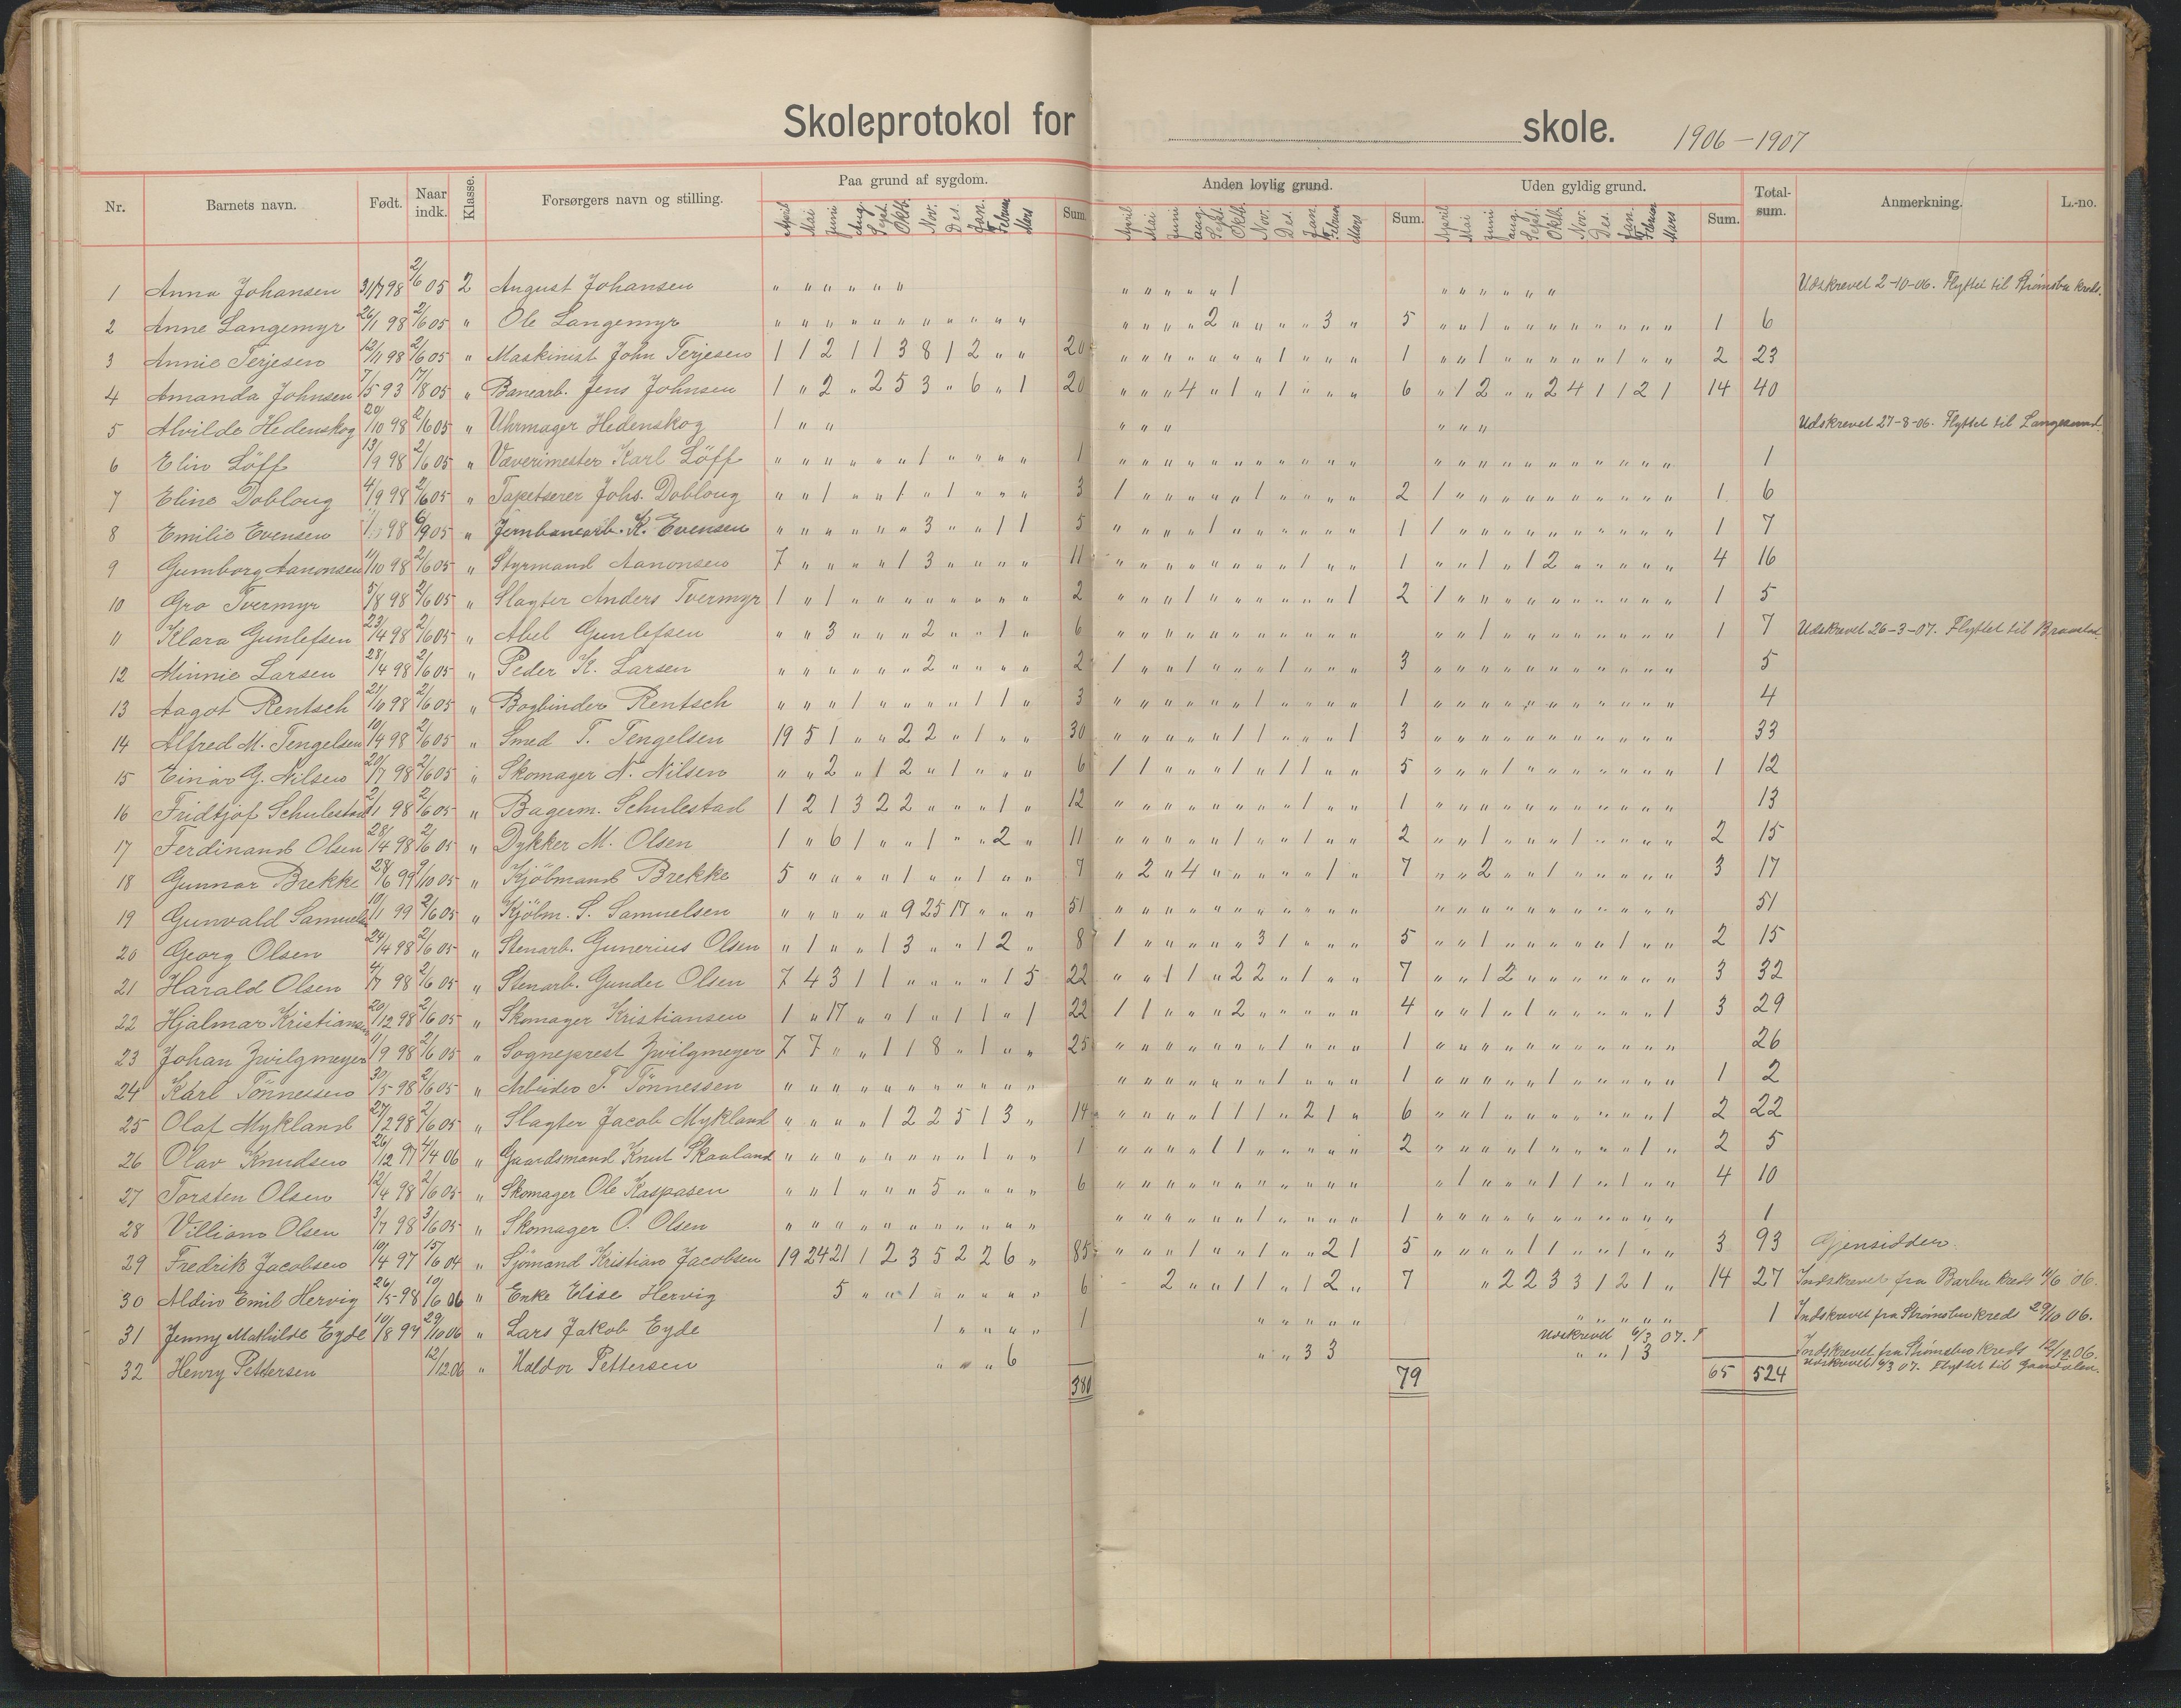 Skoleprotokol for skole. 1906–1907
Nr. Barnets navn. Født. Naar indk. Klasse. Forsørgers navn og stilling. Paa grund af sygdom. Anden lovlig grund. Uden gyldig grund. Total-sum. Anmerkning. L.-no.
April Mai Juni Aug. Sept. Oktb. Nov. Des. Jan. Februar Mars Sum. April Mai Juni Aug. Sept. Oktb. Nov. Des. Jan. Februar Mars Sum. April Mai Juni Aug. Sept. Oktb. Nov. Des. Jan. Februar Mars Sum.
1 Anna Johansen 31/7 98 2/6 05 2 August Johansen " " " " " " " " " " " 1 " " " " " " Udskrevet 2-10-06. Flyttet til Strømsbu kreds.
2 Anne Langemyr 26/1 98 2/6 05 " Ole Langemyr " " " " " " " " " " " " " " " 2 " " " " 3 " 5 " " 1 " " " " " " " " 1 6
3 Annie Terjesen 12/11 98 2/6 05 " Maskinist John Terjesen 1 1 2 1 1 3 8 1 2 " " 20 " " " " " " " 1 " " " 1 " " 1 " " " " " 1 " " 2 23
4 Amanda Johnsen 7/5 93 17/8 05 " Banearb. Jens Johnsen 1 " 2 " 2 5 3 " 6 " 1 20 " " " 4 " 1 " 1 " " " 6 " 1 2 " " 2 4 1 1 2 1 14 40
5 Alvilde Hedenskog 20/10 98 2/6 05 " Uhrmager Hedenskog 1 " " " " " " " " Udskrevet 27-8-06. Flyttet til Langesund.
6 Elin Löff 13/9 98 2/6 05 " Væverimester Karl Löff " " " " " " 1 " " " " 1 " " " " " " " " " " " " " " " " " " " " " " 1
7 Eline Doblong 4/9 98 2/6 05 " Tapetserer Johs. Doblong " " 1 " " 1 " 1 " " " 3 1 " " " " " 1 " " " " 2 1 " " " " " " " " " " 1 6
8 Emilie Evensen 98 6/9 05 " Jernbanearb. K. Evensen " " " " " " 3 " " 1 1 5 " " " " 1 " " " " " " 1 1 " " " " " " " " " " 1 7
9 Gumborg Aanonsen 11/10 98 2/6 05 " Styrmand Aanonsen 7 " " " " 1 3 " " " " 11 " " " " " " " " 1 " " 1 " " 1 " 1 2 " " " " " 4 16
10 Gro Tvermyr 5/8 98 2/6 05 " Slagter Anders Tvermyr 1 " 1 " " " " " " " " 2 " " " 1 " " " " " " 1 2 1 " " " " " " " " " " 1 5
11 Klara Gunlefsen 23/4 98 2/6 05 " Abel Gunlefsen " " 3 " " " 2 " " 1 " 6 " " " " " " " " " " " " " 1 " " " " " " " " 1 7 Udskrevet 26-3-07. Flyttet til
12 Minnie Larsen 28/4 98 2/6 05 " Peder K. Larsen " " " " " " 2 " " " " 2 1 " " 1 " " " 1 " " " 3 " " " " " " " " " " " 5
13 Aagot Rentsch 21/10 98 2/6 05 " Bogbinder Rentsch " " " 1 " " " " 1 1 " 3 " " " " " " 1 " " " " 1 " " " " " " " " " " " 4
14 Alfred M. Tengelsen 10/4 98 2/6 05 " Smed T. Tengelsen 19 5 1 " " 2 2 " 1 " " 30 " " " " " 1 1 " " " 1 3 " " " " " " " " " " " 33
15 Einar G. Nilsen 20/7 98 2/6 05 " Skomager N. Nilsen " " 2 " 1 2 " 1 " " " 6 1 1 " " " 1 " 1 1 " " 5 " " " 1 " " " " " " " 1 12
16 Fridtjof Schulestad 2/1 98 2/6 05 " Bagerm. Schulestad 1 2 1 3 2 2 " " " 1 " 12 " " " " " " " " 1 " " 1 " " " " " " " " " " " 13
17 Ferdinand Olsen 28/4 98 2/6 05 " Dykker M. Olsen 1 " 6 1 " " 1 " " 2 " 11 " " " " " 1 " " 1 " " 2 " " 1 " " " 1 " " " " 2 15
18 Gunnar Brekke 28/6 99 9/10 05 " Kjöbmand Brekke 5 " " " " 1 " " 1 " " 7 " 2 " 4 " " " " " 1 " 7 " " 2 " " 1 " " " " " 3 17
19 Gunvald Samuels 10/1 99 2/6 05 " Kjöbm. S. Samuelsen " " " " " 9 25 17 " " " 51 " " " " " " " " " " " " " " " " " " " " " " 51
20 Georg Olsen 24/4 98 2/6 05 " Stenarb. Gunerius Olsen " 1 " " 1 3 " " 1 2 " 8 1 " " " " " 3 1 " " " 5 " " 1 " " " " " 1 " " 2 15
21 Harald Olsen 4/7 98 2/6 05 " Stenarb. Gunder Olsen 7 4 3 1 1 " " " " 1 5 22 " " 1 1 " 2 2 " 1 " " 7 " " 1 2 " " " " " " " 3 32
22 Hjalmar Kristiansen 20/12 98 2/6 05 " Skomager Kristiansen 1 " 17 " " 1 " 1 1 " 1 22 1 1 " " " 2 " " " " " 4 " " 1 " 1 " " " " " 1 3 29
23 Johan Zwilgmeyer 11/9 98 2/6 05 " Sogneprest Zwilgmeyer 7 7 " " 1 1 8 " 1 " " 25 " " " " " " " 1 " " " 1 " " " " " " " " " " " 26
24 Karl Tönnessen 30/5 98 2/6 05 " Arbeider T. Tönnessen " " " " " " " " " " " " " " " " " " 1 " " " 1 " " " " " 1 " " " " " 1 2
25 Olaf Mykland 27/2 98 2/6 05 " Slagter Jacob Mykland " " " " 1 2 2 5 1 3 " 14 " " " " 1 1 1 " 2 1 " 6 " " 1 " " " " " " " 1 2 22
26 Olav Knudsen 26/12 97 4/4 06 " Gaardsmand Knut Skaaland " " " " " " " " 1 " " 1 " " " " 1 1 " " " " " 2 " " " " 1 " " " " 1 " 2 5
27 Torsten Olsen 12/4 98 2/6 05 " Skomager Ole Kaspasen " " 1 " " " 5 " " " " 6 " " " " " " " " " " " " 1 " " " 1 1 " 1 " " 4 10
28 William Olsen 3/7 98 3/6 05 " Skomager O. Olsen " " " " " " " " " " " " " " " " " 1 " " " " 1 " " " " " " " " " " " 1
29 Fredrik Jacobsen 10/4 97 15/6 04 " Sjømand Kristian Jacobsen 19 24 21 1 2 3 5 2 2 6 " 85 " " " 1 " " 1 " " 2 1 5 " " " " 1 1 " " 1 " " 3 93 Gjensidden.
30 Aldin Emil Hervig 26/5 98 19/6 06 " Enke Elise Hervig 5 " " 1 " " " " " 6 2 " " 1 1 " 1 2 " 7 " 2 2 3 3 1 2 1 " 14 27 Indskrevet fra Barbu kreds 06.
31 Jenny Mathilde Eyde 10/8 97 29/10 06 " Lars Jakob Eyde 1 " " " " 1 " " " " " " " " " " 1 Indskrevet fra Strømsbu kred 29/10 06.
Udskrevet 6/3 07.
32 Henry Pettersen 12/12 06 " Haldor Pettersen " " " 6 " " 3 3 " " 1 3 Indskrevet fra Strømsbu kreds 12/12 06.
380 79 65 524 Udskrevet 6/3 07. Flyttet til